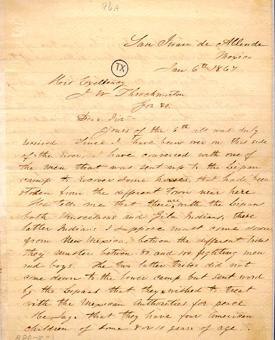 San Juan de Allende
Mexico
Jan 6th 1867
His Excellency
J. W. Throckmorton
Gov &c.
Dear Sir
Yours of the 5th ult was duly
received Since I have been over on this side
of the river, I have conversed with one of
the men that was sent up to the Lipan
camp to recover some horses that had been
stolen from the different towns near here
He tells me that there are with the Lipans
both Muscaleros and Gila Indians, these
latter Indians I suppose must come down
from New Mexico. between the different tribes
they muster between 80 and 100 fighting men
and boys. The two latter tribes did not
come down to the lower camp but sent word
by the Lipans that they wished to treat
with the Mexican Authorities for peace
He says that they have four American
children of some 8 or 10 years of age
TX